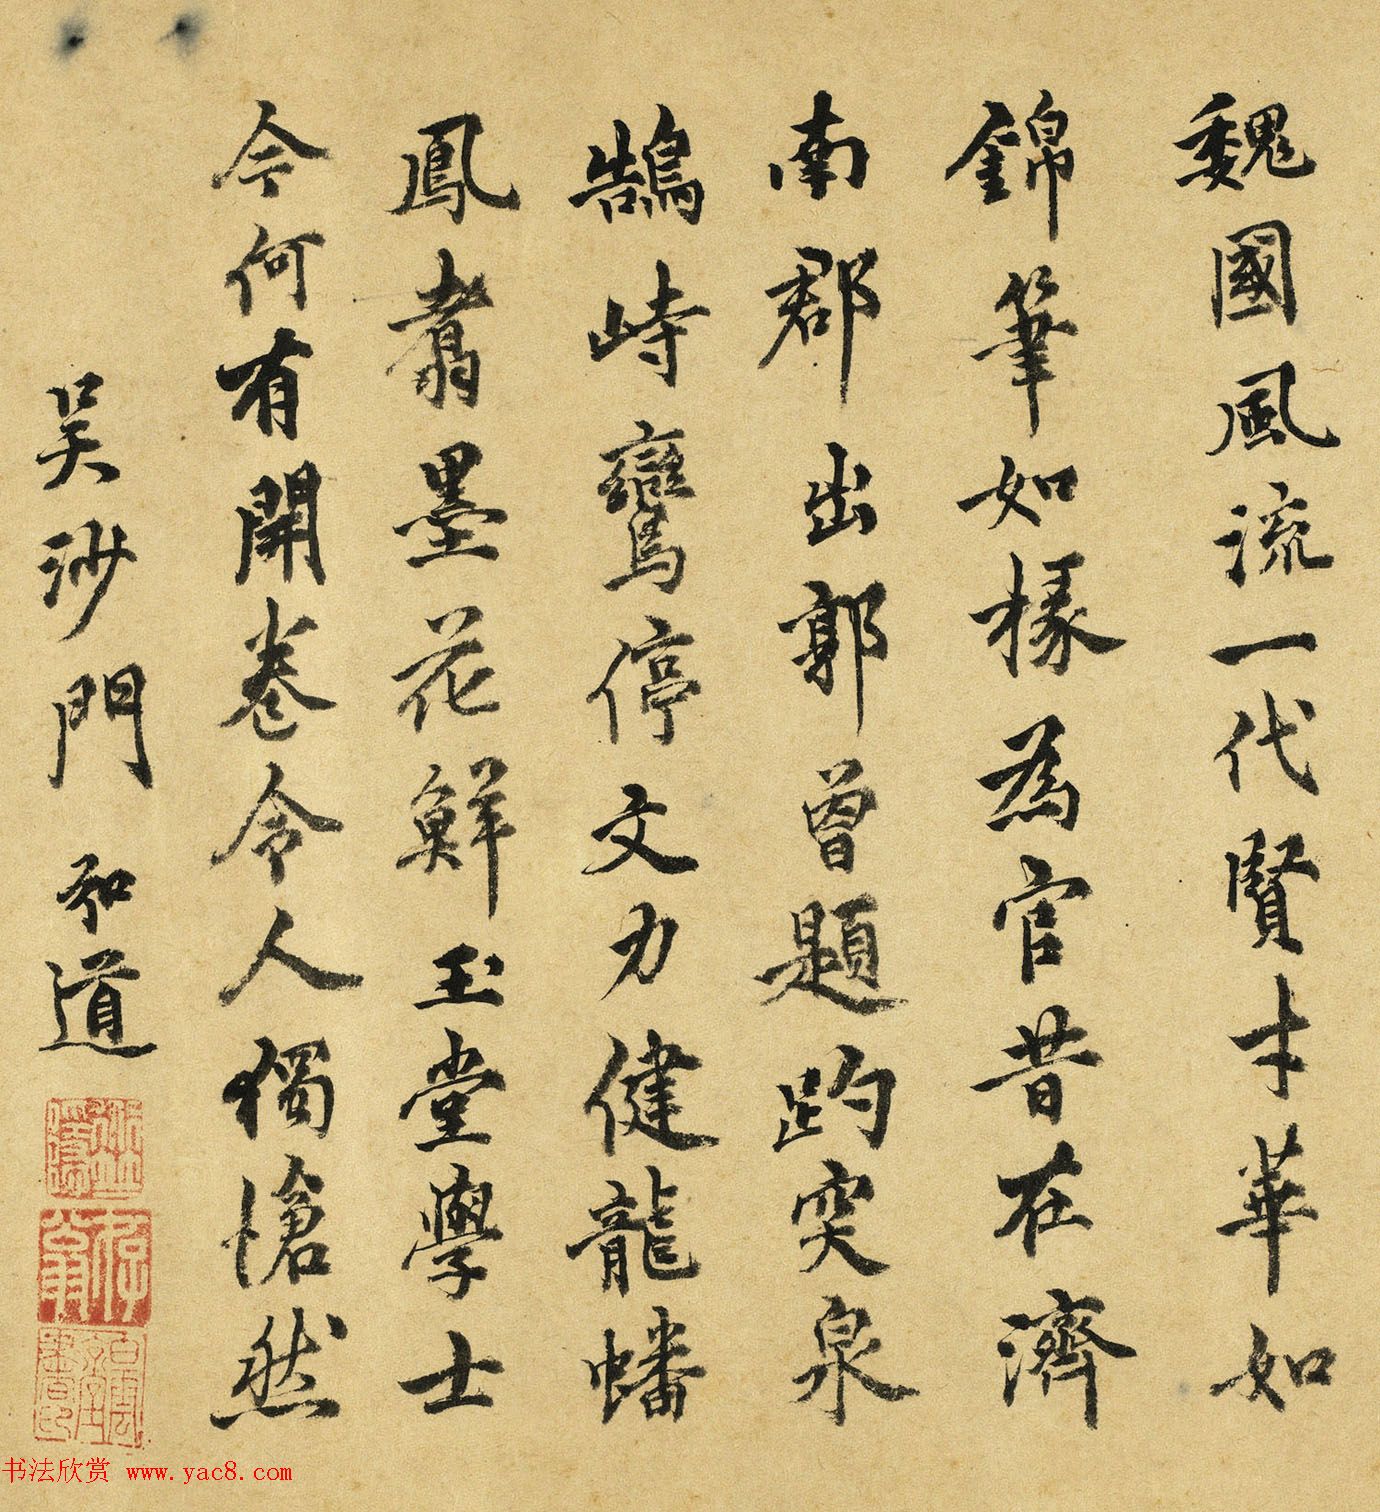 魏國風流一代賢才華如
錦筆如椽為官昔在濟
南郡出郭曾題趵突泉
鵠峙鸞停文力健龍蟠
鳳翥墨花鮮玉堂學士
今何有開卷令人獨愴然
吳沙門 弘道
书法欣赏 www.yac8.com